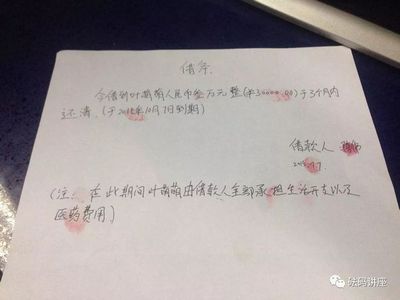 借条
今借到叶萌萌人民币叁万元整(¥30000.00)于3个月内
还清.(于2015年10月7日到期)
借款人
(注: 在此期间叶萌萌由借款人全部承担生活开支以及
医药费用)
砝码讲座